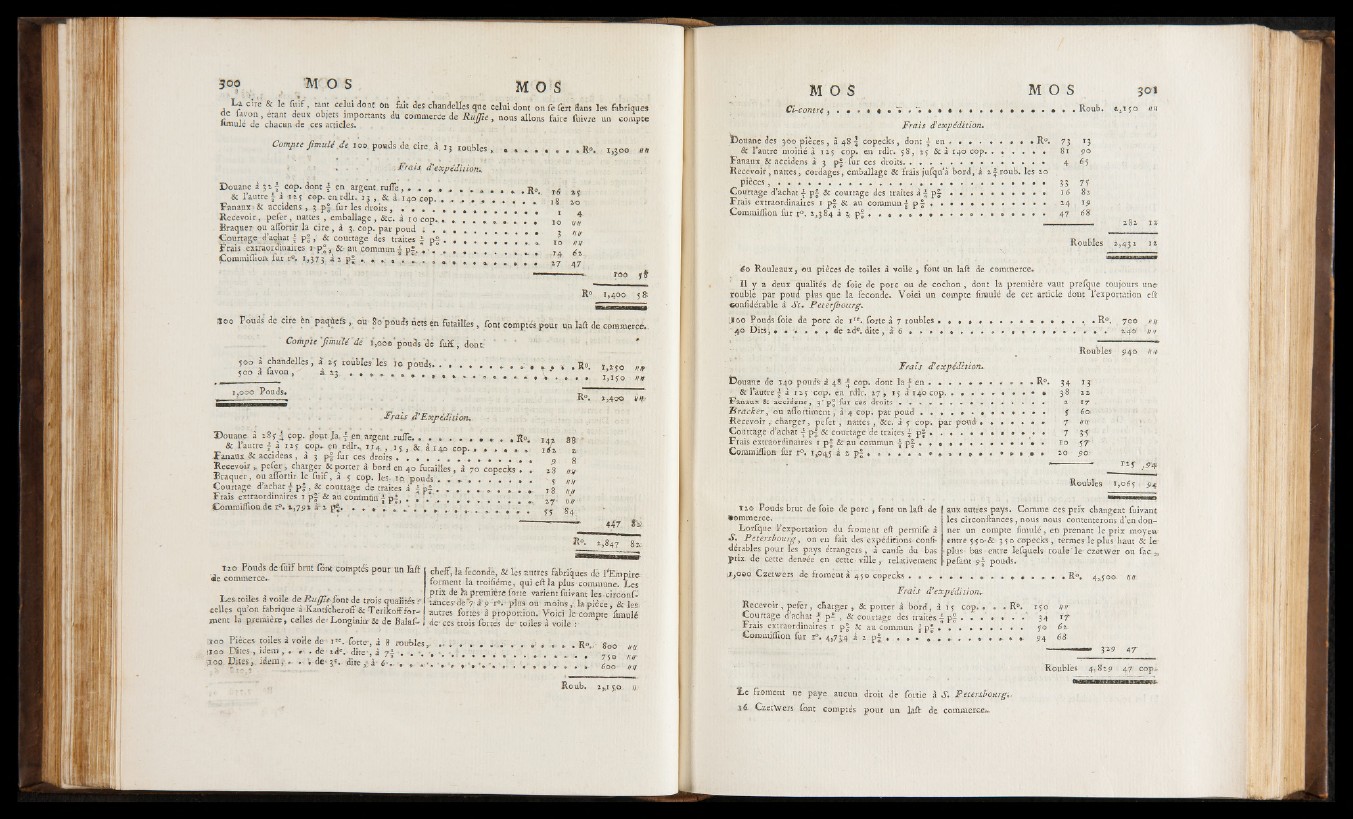 300 MOS MOS
La cire & le suif, tant celui dont on fait des chandelles que celui dont on se sert dans les fabriques
de savon, étant deux objets importants du commerce de Russie, nous allons faire suivre un compte
simulé de chacun de ces articles.
Compte simulé de 100 pouds de cire à 13 roubles, . . . . . . . . R°. 1,300 ""
Frais d'expédition.
Douane à 32 cop. dont en argent russe, . . . . . . . . . . . R°. 16 25
& l'autre à 125 cop. en rdlr. 13, & à 140 cop. . . . . . . . . 18 20
Fanaux & accidens, 3 p° sur les droits, . . . . . . . . . 1 4
Recevoir, peser, nattes, emballage, &c. à 10 cop. . . . . . . . 10 ""
Braquer ou assortir la cire, à 3. cop. par poud . . . . . . . 3 ""
Courtage d'achat p°, & courtage des traites p° . . . . . . . 10 ""
Frais extraordinaires 1 p°, & au commun p°. . . . . . . . . 14 62
Commission sur r°. 1,373 à 2 p° . . . . . . . . . . . . 27 47
100 58
R° 1,400 58
100 Pouds de cire en paquets, ou 80 pouds nets en futailles, sont comptés pour un last de commerce.
Compte simulé de 1,000 pouds de suif, dont
500 à chandelles, à 25 roubles les 10 pouds. . . . . . . . . . R°. 1,250 ""
500 à savon, à 23 . . . . . . . . . . . . . . 1,150 ""
1,000 Pouds. R°. 2,400 ""
Frais d'Expédition.
Douane à 285 cop. dont la en argent russe. . . . . . . . . . R°. 142 88
& l'autre à 125 cop. en rdlr. 114, 15, & à 140 cop. . . . . . . 162 2
Fanaux & accidens, à 3 p° sur ces droits . . . . . . . . . 9 8
Recevoir, peser, charger & porter à bord en 40 futailles, à 70 copecks . . 28 ""
Braquer, ou assortir le suif, à 5 cop. les 10 pouds . . . . . . . 5 ""
Courtage d'achat p°, & courtage de traites à p° . . . . . . . . 18 ""
Frais extraordinaires 1 p° & au commun p°. . . . . . . . . 27 ""
Commission de r°. 2,792 à 2 p°. . . . . . . . . . . . . 55 84
447 82
R°. 2,847 82
120 Pouds de suif brut sont comptés pour un last
de commerce.
Les toiles à voile de Russie sont de trois qualités :
celles qu'on fabrique à Kantscheroff & Terikoff forment
la première, celles de Longinin & de Balaf-
cheff, la seconde, & les autres fabriques de l'Empire
forment la troisième, qui est la plus commune. Les
prix de la première sorte varient suivant les circonstances
de 7 à 9 r°. plus ou moins, la pièce, & les
autres sortes à proportion. Voici le compte simulé
de ces trois sortes de toiles à voile :
100 Pièces toiles à voile de 1re. sorte, à 8 roubles, . . . . . . . . . R°. 800 ""
100 Dites, idem, . . . de 2de. dite, à 7½ . . . . . . . . . . . 750 ""
100 Dites, idem, . . . de 3e. dite, à 6 . . . . . . . . . . . . 600 ""
Roub. 2,150 "
MOS MOS 301
Ci-contre, . . . . . . . . . . . . . . . . . . . Roub. 2,150 ""
Frais d'expédition.
Douane des 300 pièces, à 48 copecks, dont en . . . . . . . . . R°. 73 13
& l'autre moitié à 125 cop. en rdlr. 58, 25 & à 140 cop. . . . . . . 81 90
Fanaux & accidens à 3 p° sur ces droits. . . . . . . . . . . . . 4 65
Recevoir, nattes, cordages, emballage & frais jusqu'à bord, à 2 roub. les 20
pièces, . . . . . . . . . . . . . . . . . . . 33 75
Courtage d'achat p° & courtage des traites à p° . . . . . . . . . 16 82
Frais extraordinaires 1 p° & au commun p° . . . . . . . . . . . 24 19
Commission sur r°. 2,384 à 2 p° . . . . . . . . . . . . . . . 47 68
282 12
Roubles 2,432 12
60 Rouleaux, ou pièces de toiles à voile, font un last de commerce.
Il y a deux qualités de soie de porc ou de cochon, dont la première vaut presque toujours une
rouble par poud plus que la seconde. Voici un compte simulé de cet article dont l'exportation est
considérable à St. Petersbourg.
100 Pouds soie de porc de 1re. sorte à 7 roubles . . . . . . . . . . . . . R°. 700 ""
40 Dits, . . . . . . de 2de. dite, à 6 . . . . . . . . . . . . . . . . 240 ""
Roubles 940 ""
Frais d'expédition.
Douane de 140 pouds à 48 cop. dont la en . . . . . . . . . . . R°. 34 13
& l'autre à 125 cop. en rdlr. 27, 15 à 140 cop. . . . . . . . . . 38 22
Fanaux & accidens, 3 p° sur ces droits . . . . . . . . . . . . . 2 17
Bracker, ou assortiment, à 4 cop. par poud . . . . . . . . . . . 5 60
Recevoir, charger, peser, nattes, &c. à 5 cop. par poud . . . . . . . 7 ""
Courtage d'achat p° & courtage de traites p° . . . . . . . . . . 7 35
Frais extraordinaires 1 p° & au commun p° . . . . . . . . . . . 10 57
Commission sur r°. 1,045 à 2 p° . . . . . . . . . . . . . . 20 90
125 94
Roubles 1,065 94
120 Pouds brut de soie de porc, font un last de
commerce.
Lorsque l'exportation du froment est permise à
S. Petersbourg, on en fait des expéditions considérables
pour les pays étrangers, à cause du bas
prix de cette denrée en cette ville, relativement
aux autres pays. Comme ces prix changent suivant
les circonstances, nous nous contenterons d'en donner
un compte simulé, en prenant le prix moyen
entre 550 & 350 copecks, termes le plus haut & le
plus bas entre lesquels roule le czetwer ou sac,
pesant 9½ pouds.
1,000 Czetwers de froment à 450 copecks . . . . . . . . . . . . . . . . R°. 4,500 ""
Frais d'expédition.
Recevoir, peser, charger, & porter à bord, à 15 cop. . . . R°. 150 ""
Courtage d'achat p°, & courtage des traites p° . . . . . . . 34 17
Frais extraordinaires 1 p° & au commun p° . . . . . . . . . 50 62
Commission sur r°. 4,734 à 2 p° . . . . . . . . . . . . . 94 68
329 47
Roubles 4,829 47 cop.
Le froment ne paye aucun droit de sortie à S. Petersbourg.
16 Czetwers sont comptés pour un last de commerce.